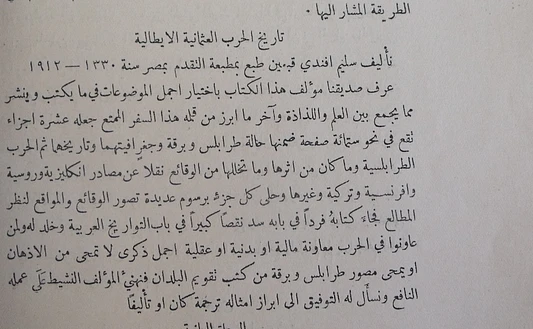 الطريقة المشار اليها .
تاريخ الحرب العثمانية الايطالية
تأليف سليم افندي قبعين طبع بمطبعة التقدم بمصر سنة ١٣٣٠ — ١٩١٢
عرف صديقنا مؤلف هذا الكتاب باختيار اجمل الموضوعات في ما يكتب وينشر
مما يجمع بين العلم واللذاذة وآخر ما ابرز من قلمه هذا السفر الممتع جعله عشرة اجزاء
تقع في نحو ستمائة صفحة ضمنها حالة طرابلس وبرقة وجغرافيتهما وتاريخها ثم الحرب
الطرابلسية وما كان من اثرها وما تخللها من الوقائع نقلاً عن مصادر انكليزية وروسية
وافرنسية وتركية وغيرها وحلى كل جزء برسوم عديدة تصور الوقائع والمواقع لنظر
المطالع فجاء كتابهُ فرداً في بابه سد نقصاً كبيراً في باب التواريخ العربية وخلد له ولمن
عاونوا في الحرب معاونة مالية او بدنية او عقلية اجمل ذكرى لا تمحى من الاذهان
او يمحى مصور طرابلس وبرقة من كتب تقويم البلدان فنهنئ المؤلف النشيط عَلَى عمله
النافع ونسأَل له التوفيق الى ابراز امثاله ترجمة كان او تأليفاً